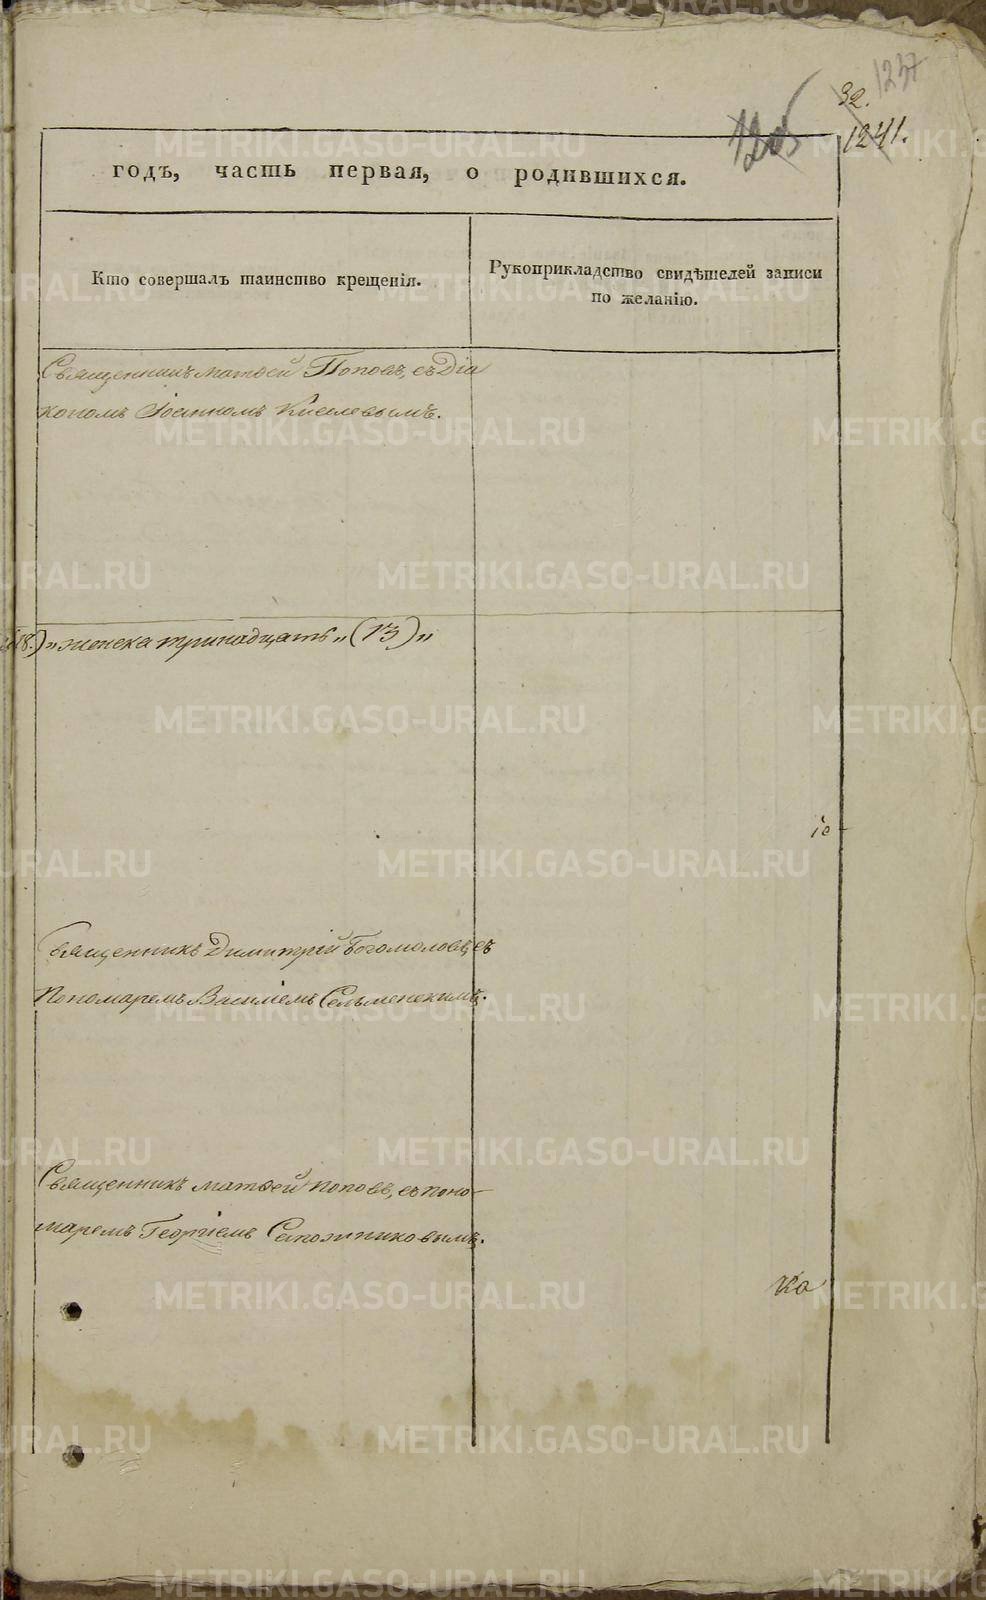 1237
32.
1205
1241.
годъ, часть первая, о родившихся.
Кто совершалъ таинство крещенія.
Рукоприкладство свидѣтелей записи
по желанію.
Священникъ Матѳей Поповъ, съ Діа
кономъ Іоанномъ Киселевымъ.
18.) „женска тринадцать„ (13)„
іе-
Священникъ Димитрій Богомоловъ, съ
Пономаремъ Василіемъ Сельменскимъ.
Священникъ Матѳей Поповъ, съ поно-
маремъ Георгіемъ Сапожниковымъ.
ка
METRIKI.GASO-URAL.RU